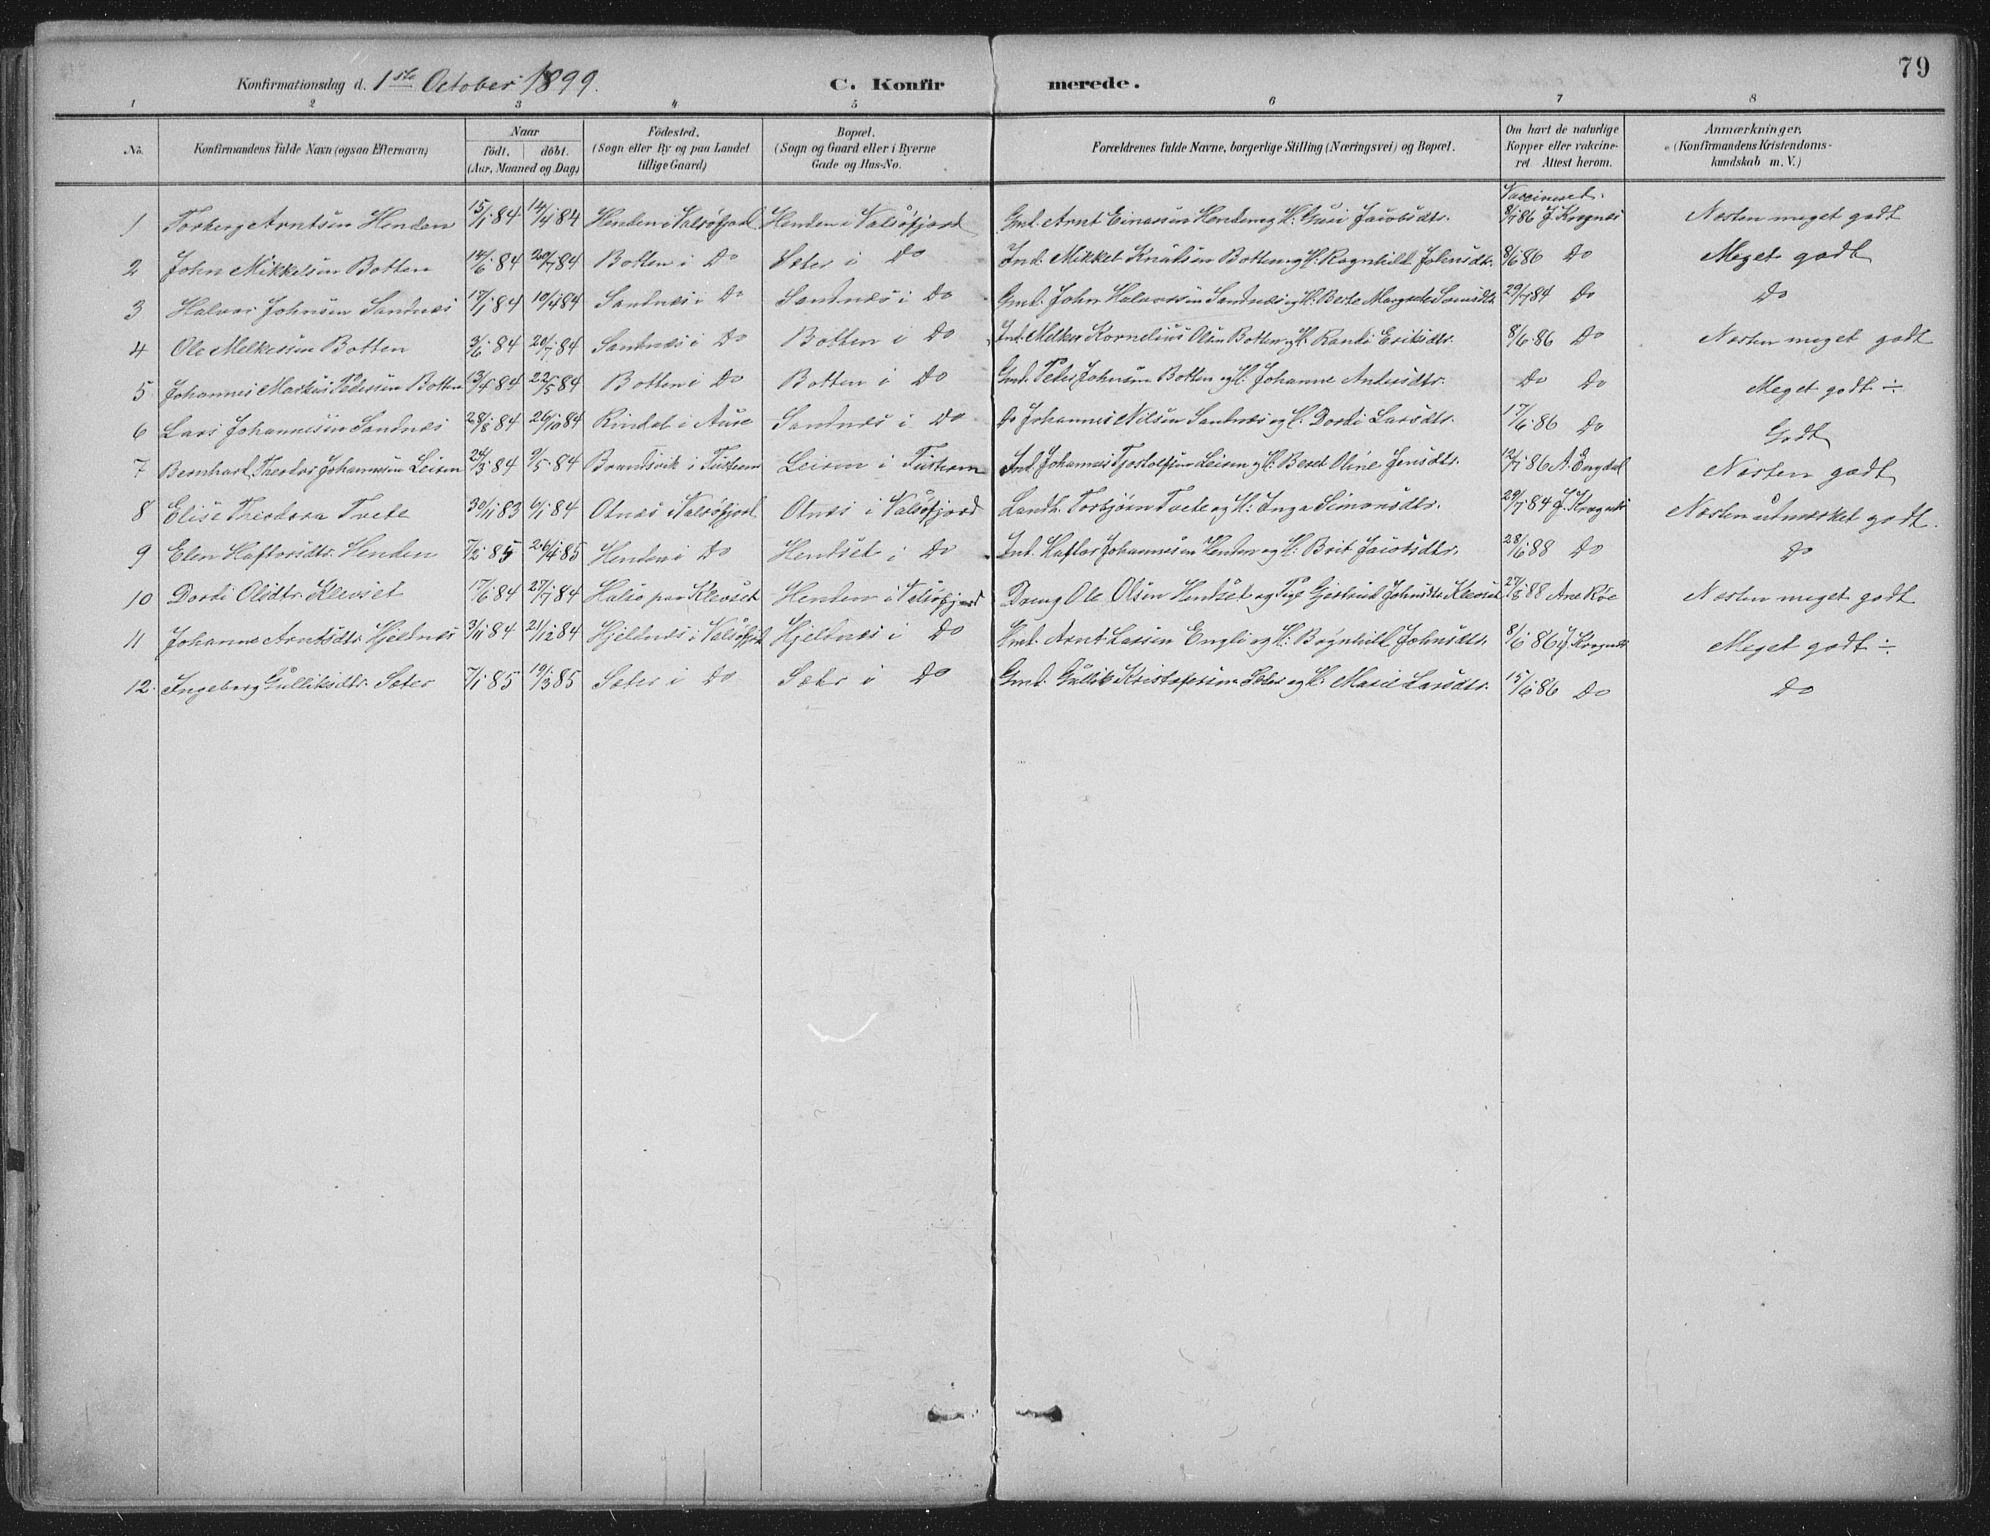 79
Konfirmationsdag d. 1ste October 1899.
C. Konfirmerede.
1 2 3 4 5 6 7 8
No. Konfirmandens fulde Navn (ogsaa Efternavn) Naar födt. döbt. (Aar, Maaned og Dag) Födested. (Sogn eller By og paa Landet tillige Gaard) Bopæl. (Sogn og Gaard eller i Byerne Gade og Hus-No. Forældrenes fulde Navne, borgerlige Stilling (Næringsvei) og Bopæl. Om havt de naturlige Kopper eller vakcineret. Attest herom. Anmærkninger. (Konfirmandens Kristendomskundskab m. V.)
Vaccineret.
1 Torberg Arntsen Henden 15/1 84 14/4 84 Henden i Valsöfjord Henden i Valsöfjord Gmd. Arnt Einarsen Henden og H. Guri Jacobsdtr. 8/7 86 J. Krognes Næsten meget godt
2 John Mikkelsen Botten 14/6 84 20/7 84 Botten i Do Sæter i Do Ind. Mikkel Knutsen Botten og H. Ragnhild Johnsdtr. 8/6 86 Do Meget godt
3 Halvor Johnsen Sandnæs 17/1 84 10/4 84 Sandnæs i Do Sandnæs i Do Gmd. John Halvorsen Sandnæs og H. Berte Margrete 29/7 84 Do Do
4 Ole Melkersen Botten 3/6 84 20/7 84 Sandnæs i Do Botten i Do Ind. Melker Kornelius Olsen Botten og H. Randi Eriksdtr. 8/6 86 Do Næsten meget godt
5 Johannes Markus Pedersen Botten 13/4 84 22/5 84 Botten i Do Botten i Do Gmd. Peter Johnsen Botten og H. Johanne Andersdtr. Do Do Meget godt ÷
6 Lars Johannesen Sandnæs 28/8 84 26/10 84 Rindal i Aure Sandnæs i Do Do Johannes Nilsen Sandnæs og H. Dordi Larsdtr. 17/6 86 Do Godt
7 Bernhard Theodor Johannesen Leiren 24/3 84 9/5 84 Brandsvik i Tustern Leiren i Tustern Ind. Johannes Leiren og H. Beret Oline Jensdtr. 12/7 86 A. Engdal Næsten godt
8 Elise Theodora Tvete 30/11 83 6/1 84 Otnæs i Valsöfjord Otnæs i Valsöfjord Landh. Torbjörn Tvete og H. Inga Simonsdtr. 29/7 84 J. Krognes Næsten udmærket godt.
9 Elen Haftorsdtr. Henden 7/2 85 26/4 85 Henden i Do Hendset i Do Ind. Haftor Johannesen Henden og H. Brit Jacobsdtr. 28/6 88 Do Do
10 Dordi Olsdtr. Klevset 17/6 84 27/7 84 Halse paa Klevset Henden i Valsöfjord Dreng Ole Olsen Hendset og Pige Gjertrud Johnsdtr. Klevset 27/8 88 Arne Röe Næsten meget godt
11 Johanne Arntsdtr. Hjeldnæs 3/11 84 21/12 84 Hjeldnæs i Valsöfjord Hjeldnæs i Do Gmd. Arnt Larsen Englö og H. Ragnhild Johnsdtr. 8/6 86 J. Krognes Meget godt ÷
12. Ingeborg Gulliksdtr. Sæter 7/1 85 19/3 85 Sæter i Do Sæter i Do Gmd. Gullik Kristofersen Sæter og H. Marie Larsdtr. 15/6 86 Do Do